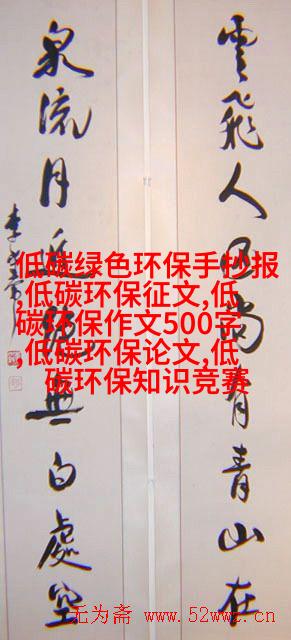 雲飛人尚有青山在
泉流月無白處空
低碳绿色环保手抄报
,低碳环保征文,低
碳环保作文500字
,低碳环保论文,低
碳环保知识竞赛
无为斋 www.52wwz.cn